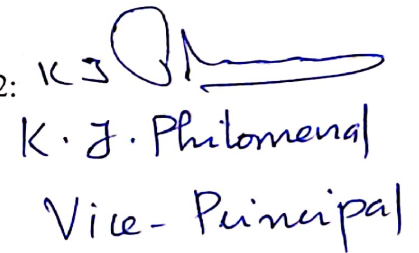 2: K J
K. J. Philomenal
Vice - Principal